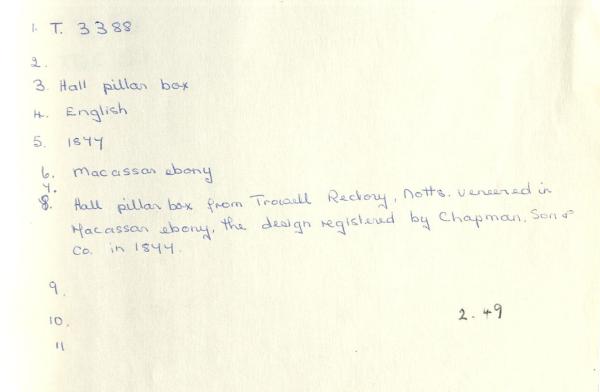 1. T. 3388
2.
3. Hall pillar box
4. English
5. 1877
6. Macassar ebony
7.
8. Hall pillar box from Trowell Rectory, Notts. veneered in
Macassar ebony, the design registered by Chapman, Son &
Co. in 1877.
9.
10.
2.49
11